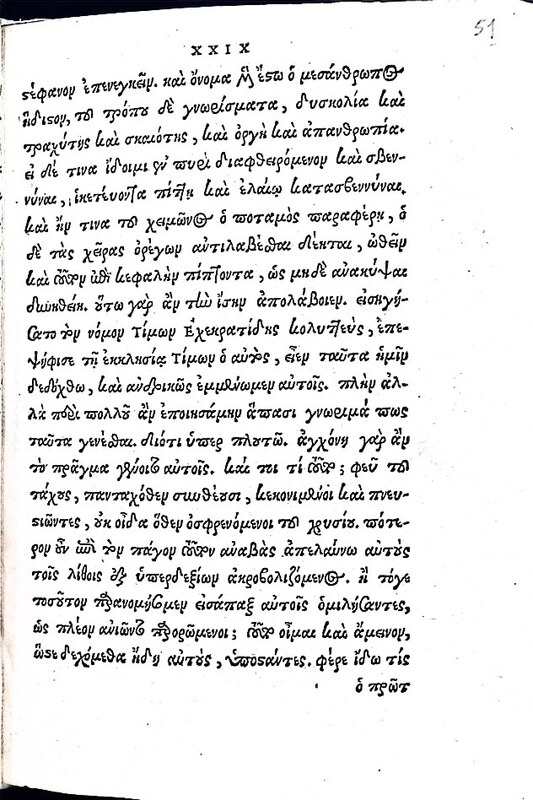 51
XXIX
στέφανον ἐπενεγκεῖν. καὶ ὄνομα μὲν ἔστω ὁ μισάνθρωπος
ἥδιστον, τοῦ τρόπου δὲ γνωρίσματα, δυσκολία καὶ
τραχύτης καὶ σκαιότης, καὶ ὀργὴ καὶ ἀπανθρωπία.
εἰ δέ τινα ἴδοιμι ἐν πυρὶ διαφθειρόμενον καὶ σβεν-
νύναι, ἱκετεύοντα πίττῃ καὶ ἐλαίῳ κατασβεννύναι.
καὶ ἤν τινα τοῦ χειμῶνος ὁ ποταμὸς παραφέρῃ, ὁ
δὲ τὰς χεῖρας ὀρέγων ἀντιλαβέσθαι δέηται, ὠθεῖν
καὶ τοῦτον ἐπὶ κεφαλὴν πίπτοντα, ὡς μηδὲ ἀνακύψαι
δυνηθείη. οὕτω γὰρ ἂν τὴν ἴσην ἀπολάβοιεν. εἰσηγή-
σατο τὸν νόμον Τίμων Ἐχεκρατίδης κολυττεὺς, ἐπε-
ψήφισε τῇ ἐκκλησίᾳ Τίμων ὁ αὐτὸς, εἶεν ταῦτα ἡμῖν
δεδόχθω, καὶ ἀνδρικῶς ἐμμένωμεν αὐτοῖς. πλὴν ἀλ-
λὰ περὶ πολλοῦ ἂν ἐποιησάμην ἅπασι γνώριμά πως
ταῦτα γενέσθαι. διότι ὑπερπλουτῶ. ἀγχόνη γὰρ ἂν
τὸ πρᾶγμα γένοιτο αὐτοῖς. καί τοι τί τοῦτο; φεῦ τοῦ
τάχους, πανταχόθεν συνθέουσι, κεκονιμένοι καὶ πνευ-
στιῶντες, οὐκ οἶδα ὅθεν ὀσφρενόμενοι τοῦ χρυσίου. πότε-
ρον οὖν ἐπὶ τὸν πάγον τοῦτον ἀναβὰς ἀπελαύνω αὐτοὺς
τοῖς λίθοις ἐξ ὑπερδεξίων ἀκροβολιζόμενος. ἢ τόγε
τοσοῦτον παρανομήσωμεν εἰσάπαξ αὐτοῖς ὁμιλήσαντες,
ὡς πλέον ἀνιῶντο παρορώμενοι; τοῦτο οἶμαι καὶ ἄμεινον,
ὥστε δεχόμεθα ἤδη αὐτοὺς, ὑποστάντες. φέρε ἴδω τίς
ὁ πρῶτ